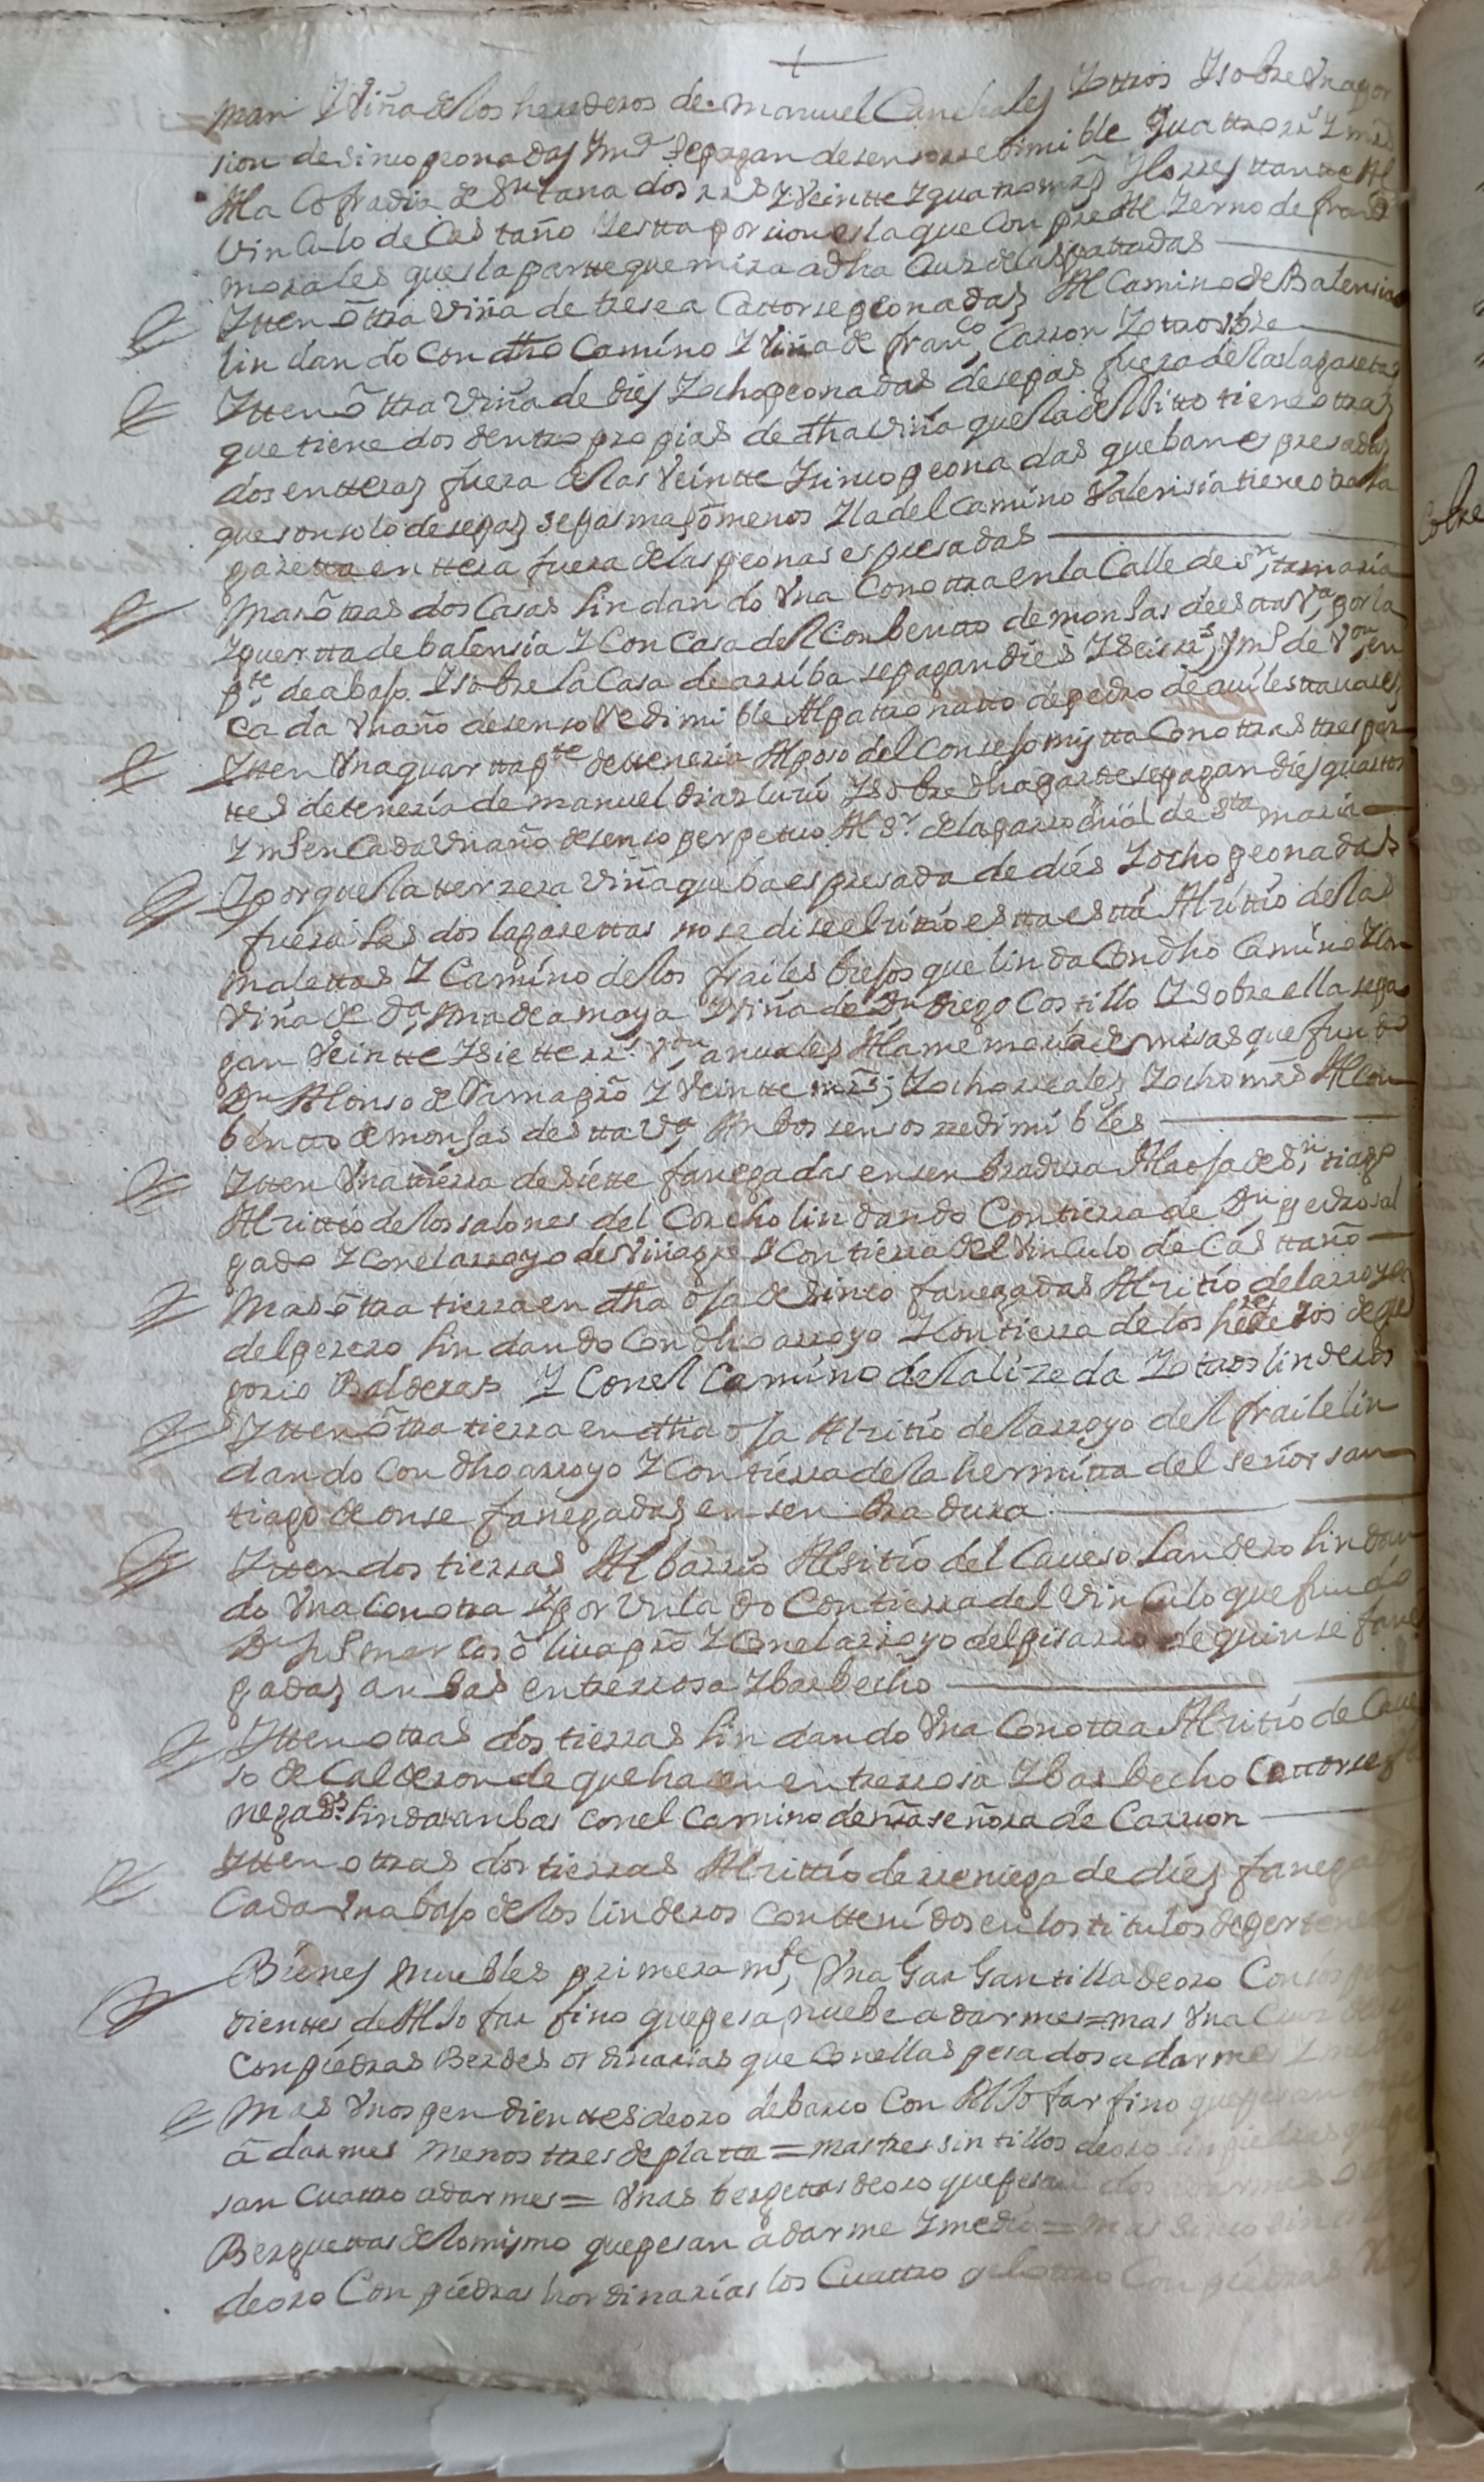 man Y Viña de los herederos de Manuel Canchales Y ottros Y sobre Vna por
sion de sinco peonadas Y mª se pagan de senso rredimible quattro rrs Y mrs
Al la Cofradia de Sta tana dos rrs Y Veintte Y quatro mrs Y lo rres ttantte Al
Vinculo de Castaño Y estta porsion es la que Conpre Al Yerno de franco
morales que es la partte que mira a dha Cruz de las pattadas
Ytten ôttra Viña de trese a Cattorse peonadas Al Camino de Balensia
lindando Con dtho Camino Y Viña de franco Carron Y otros
Ytten ôttra Viña de dies Y ocho peonadas de sepas fuera de las lagaretas
que tiene dos dentro propias de dtha viña que la del Vitto tiene otras
dos entteras fuera de las Veintte Y sinco peonadas que ban espresadas
que son solo de sepas sepas mas ô menos Y la del Camino Valensia tiene otra la
garetta enttera fuera de las peonas espresadas
Mas ôttras dos Casas lindando Vna Con ottra en la Calle de Sn tta maria
Y puertta de balensia Y Con Casa del Conbentto de monjas de estta Va por la
pte de abajo Y sobre la Casa de arriba se pagan dies Y seis rrs Y ms de Von en
Cada Vn año de senso Redimible Al pattronatto de pedro de auiles ttauares
Ytten Vna quartta pte de tteneria Al poso del Consejo mistta Con ottras ttres par
ttes de teneria de manuel dias lurio Y sobre dha partte se pagan dies quarttos
Y ms en Cada Vn año de senso perpetuo Al Sr de la parrochial de Sta maria
Y porque la tterzera Viña que ba espresada de dies Y ocho peonadas
fuera las dos lagarettas no se dise el sittio estta esttá Al sittio de las
malettas Y Camino de los frailes biejos que linda Con dho Camino Y Con
Viña de Da Ana de amaya Y Viña de Dn Diego Costillo Y sobre ella se pa
gan Veintte Y siette rrs Von anuales Al la memoria de misas que fundó
Dn Alonso de Tamayo pro Y Veintte mrs; Y ocho rreales Y ocho mrs Al Con
bentto de monjas de stta Va Anbos sensos rredimibles
Ytten Vna tierra de siette fanegadas en senbradura Al la oja de Sn tiago
Al sittio de los salones del Corcho lindando Con tierra de Dn pedro sal
gado Y Con el arroyo de Vinagre Y Con tierra del Vinculo de Casttaño
Mas ôttra tierra en dtha oja de Sinco fanegadas Al sitio del arroyo
del perero lindando Con dho arroyo Y Con tierra de los herederos de gre
gorio Balderas Y Con el Camino de la lizeda Y otros linderos
Ytten ôttra tierra en dtha oja Al sitio del arroyo del fraile lin
dando Con dho arroyo Y Con tierra de la hermitta del señor san
tiago de onse fanegadas en senbradura
Ytten dos tierras Al barrio Al sitio del Caueso landero lindan
do Vna Con otra Y por Vn lado Con tierra del Vinculo que fundó
Dn Marcos ôliua pro Y Con el arroyo del pisarro de quinse fane
gadas anbas en trerrosa Y barbecho
Ytten otras dos tierras lindando Vna Con ottra Al sitio de Caue
so de Calderon de que hasen en terrosa Y barbecho Cattorse fa
negads linda anbas Con el Camino de nra señora de Carrion
Ytten ottras dos tierras Al sittio de rreniega de dies fanegadas
Cada Vna bajo de los linderos Conttenidos en los titulos de pertenen
Bienes muebles primera mte Vna Gargantilla de oro Con
dienttes de Aljofar fino que pesa nuebe adarmes = mas Vna Cruz
Con piedras Berdes ordinarias que Con ellas pesa dos adarmes Y medio
Mas Vnos pendienttes de oro debano Con Aljofar fino que pesan onse
âdarmes menos ttres de platta = mas tres sintillos de oro sin piedras que pe
san Cuattro adarmes = Vnas berguettas de oro que pesan dos adarmes
Berguettas de lo mismo que pesan adarme Y medio = mas Sinco
de oro Con piedras hordinarias los Cuattro Con piedras